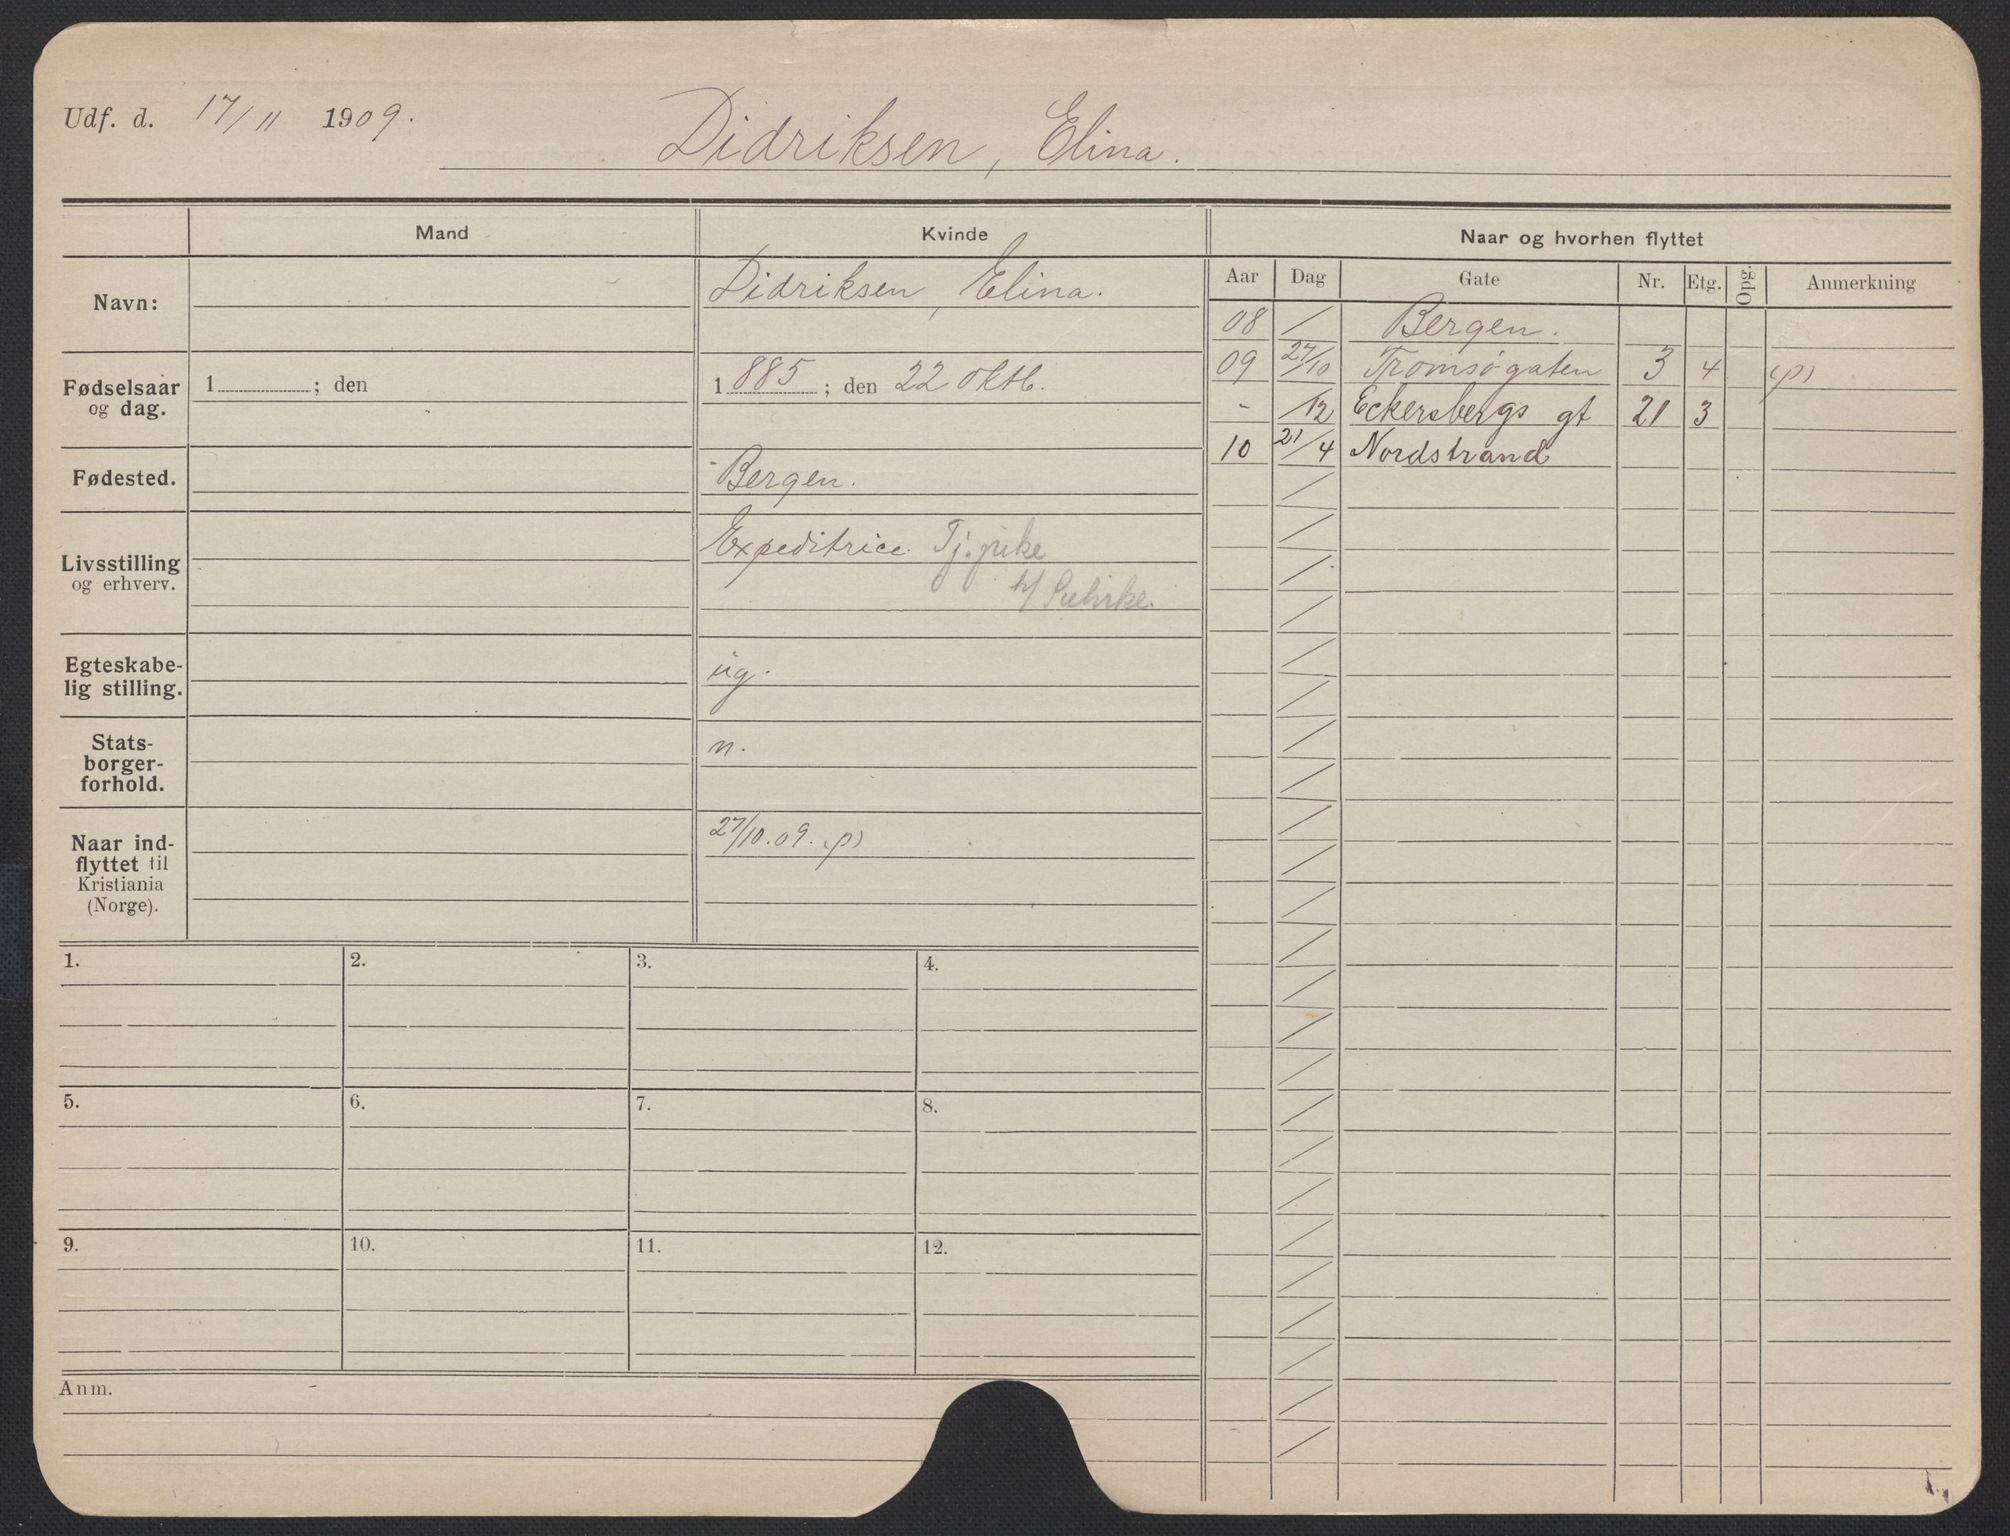 Udf. d. 17/11 1909.
Didriksen, Elina.
Mand
Kvinde
Naar og hvorhen flyttet
Navn:
Didriksen, Elina.
Fødselsaar og dag.
1 ; den
1 885 ; den 22 oktb.
Fødested.
Bergen.
Livsstilling og erhverv.
Expeditrice. Tj.pike
h/ Suhrke.
Egteskabe-
lig stilling.
ug.
Stats-
borger-
forhold.
n.
Naar ind-
flyttet til
Kristiania
(Norge).
27/10.09. (p)
Aar Dag Gate Nr. Etg. Opg. Anmerkning
08 / Bergen.
09 27/10 Tromsøgaten 3 4 (p)
- /12 Eckersbergs gt 21 3
10 21/4 Nordstrand
1. 2. 3. 4.
5. 6. 7. 8.
9. 10. 11. 12.
Anm.